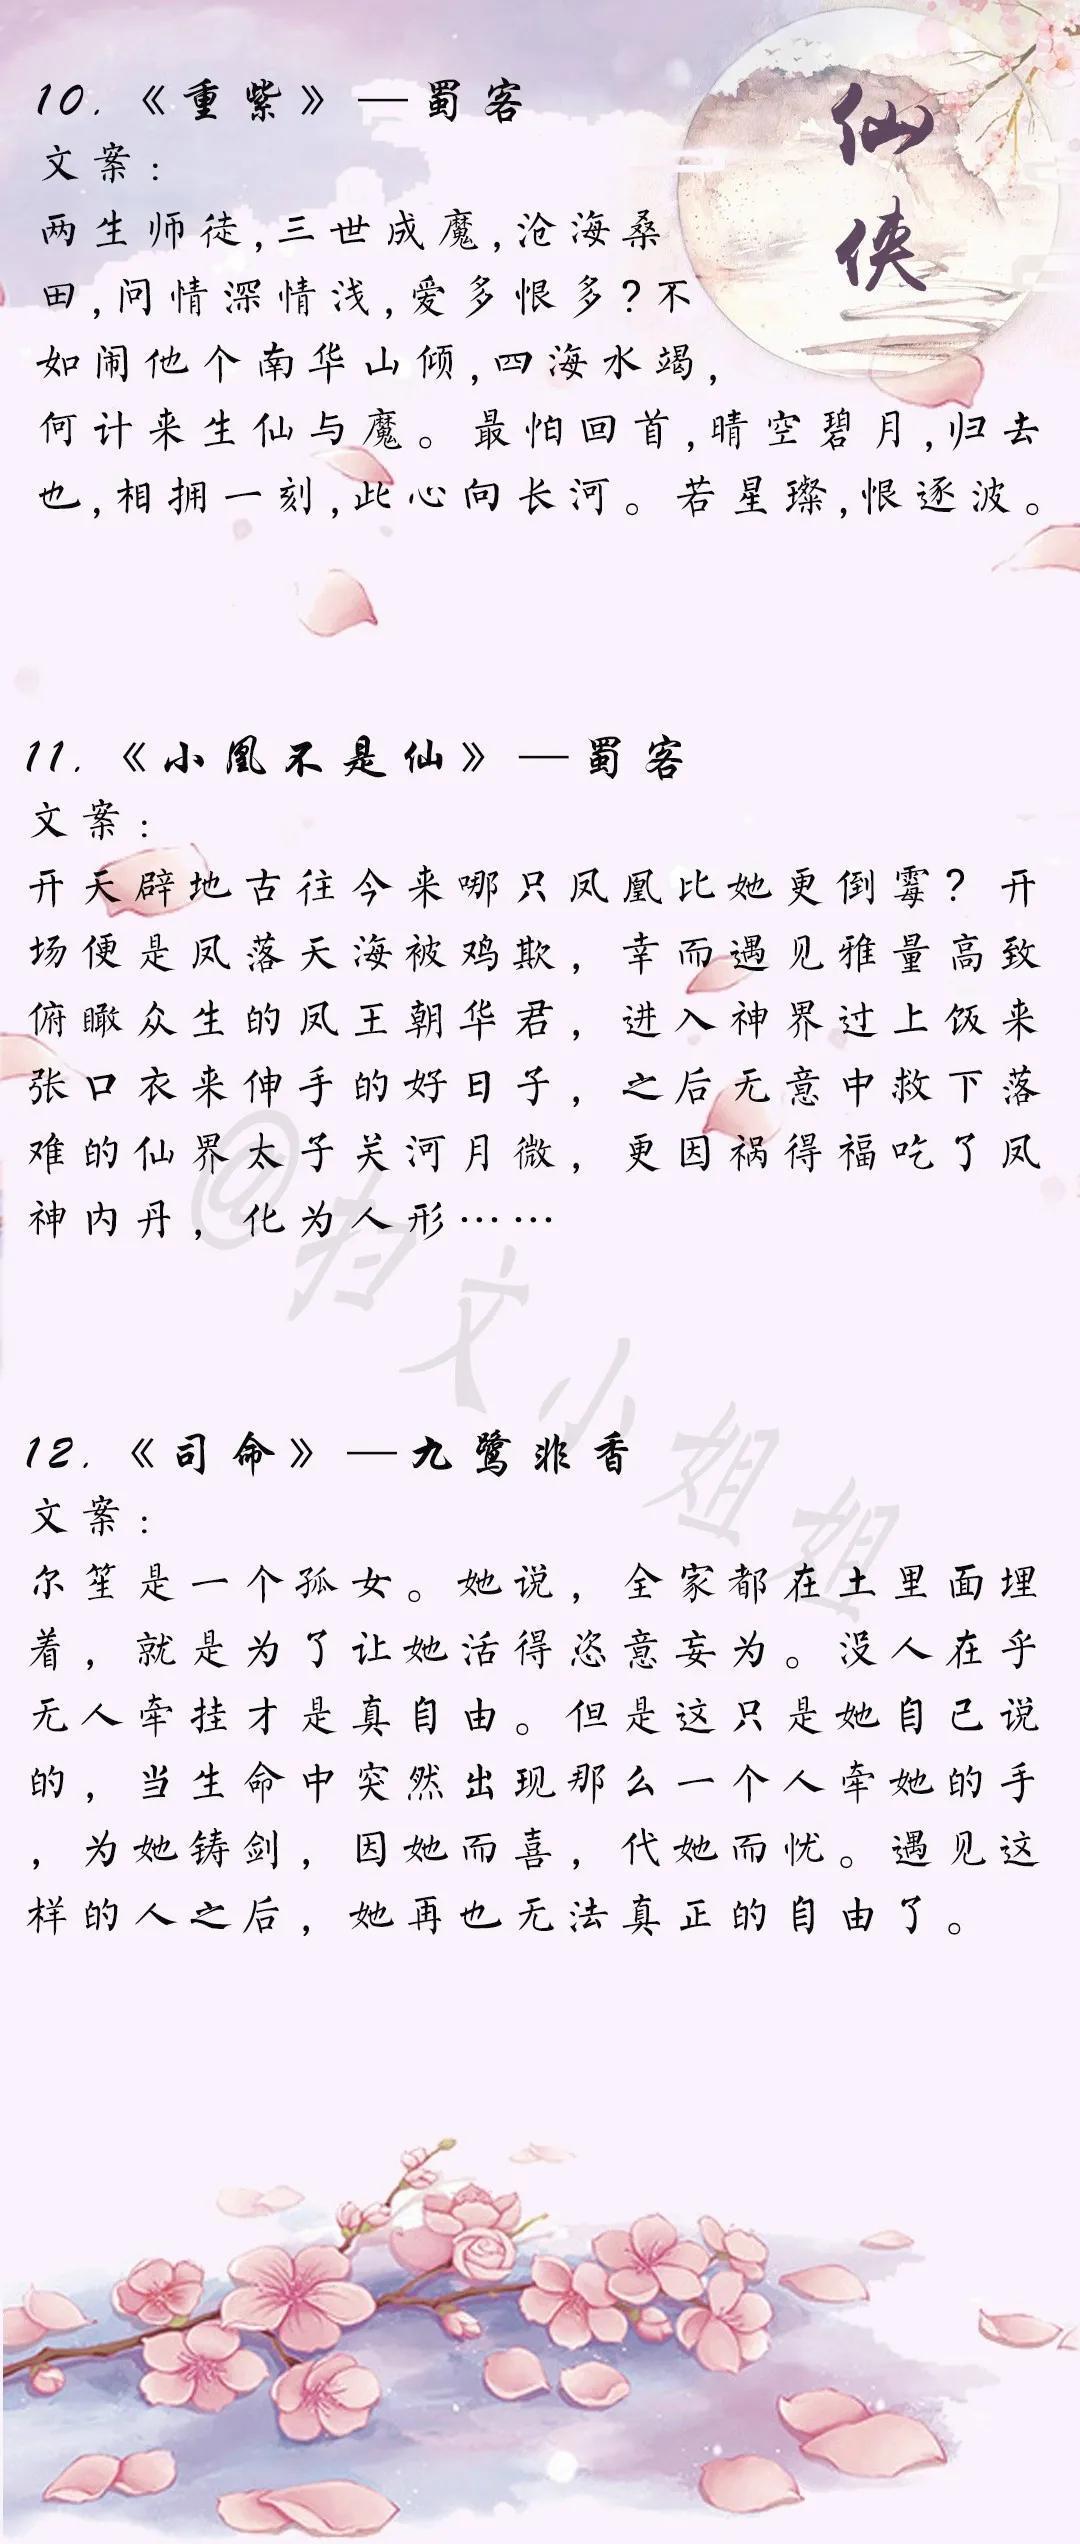 仙
侠
10.《重紫》—蜀客
文案:
两生师徒,三世成魔,沧海桑
田,问情深情浅,爱多恨多?不
如闹他个南华山倾,四海水竭,
何计来生仙与魔。最怕回首,晴空碧月,归去
也,相拥一刻,此心向长河。若星璨,恨逐波。
11.《小凰不是仙》—蜀客
文案:
开天辟地古往今来哪只凤凰比她更倒霉? 开
场便是凤落天海被鸡欺，幸而遇见雅量高致
俯瞰众生的凤王朝华君，进入神界过上饭来
张口衣来伸手的好日子，之后无意中救下落
难的仙界太子关河月微，更因祸得福吃了凤
神内丹，化为人形……
@扫文小姐姐
12.《司命》—九鹭非香
文案:
尔笙是一个孤女。她说，全家都在土里面埋
着，就是为了让她活得恣意妄为。没人在乎
无人牵挂才是真自由。但是这只是她自己说
的，当生命中突然出现那么一个人牵她的手
，为她铸剑，因她而喜，代她而忧。遇见这
样的人之后，她再也无法真正的自由了。